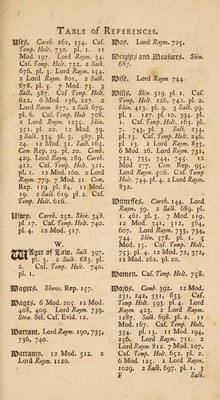 TABLE of REFERENCES.
Uses. Carth. 262, 354. Caf.
Temp. Holt. 730. pl. 1. 11
Mod 197. Lord Raym. 34.
Caf. Temp. Holt. 732. 2 Salk.
676. pl. 3. Lord Raym. 154.
2 Lord Raym. 801. 2 Salk.
678. pl. 5. 7 Mod. 75. 3
Salk. 387. Caf. Temp. Holt.
622, 6 Mod 136, 227. 2
Lord Raym 877. 2 Salk 679.
pl. 6. Caf. Temp. Holt 708.
2 Lord Raym 1152. Skin.
351. pl. 20. 12 Mod. 39.
3 Salk. 354. pl. 5. 387. pl.
24. 12 Mod. 31. Salk. 163.
Com Rep. 29. pl. 20. Comb.
429. Lord Raym. 289. Carth.
412. Caf. Temp. Holt. 321.
pl. 1. 12 Mod. 160. 2 Lord
Raym. 779. 7 Mod. 21. Com
Rep. 119 pl. 84. 11 Mod.
19. 2 Salk. 619. pl. 2. Caf.
Temp. Holt. 616.
Usury. Carth. 252. Skin. 348.
pl. 17. Caf. Temp. Holt. 740.
pl. 4. 12 Mod. 517.
W.
WAger of Law. Salk. 397.
pl. 3. 2 Salk. 683. pl.
2. Caf. Temp. Holt. 740.
pl. 1.
Wagers. Show. Rep. 157.
Wages. 6 Mod. 205. 12 Mod.
408, 409 Lord Raym. 739.
Stra. Sel. Caf. Evid. 12.
Warrant. Lord Raym. 190, 735,
736, 740.
Warranty. 12 Mod. 512. 2
Lord Raym. 1120.
Way. Lord Raym. 725.
Weights and Measures. Skin.
687.
Wife. Lord Raym 744.
Wills. Skin. 319. pl. 1. Caf.
Temp. Holt. 226, 742. pl. 2.
Skin. 413. pl. 9. 3 Salk. 93.
pl. 1 127. pl. 10. 394. pl.
1. Caf. Temp. Holt. 163. pl.
7, 743. pl. 3. Salk. 234.
pl. 13. Caf. Temp. Holt. 246.
pl. 13. 2 Lord Raym. 831.
6 Mod. 26. Lord Raym. 731,
732, 735, 744, 745. 12
Mod 277. Com Rep. 95.
Lord Raym. 506. Caf Temp
Holt 744. pl. 4. 2 Lord Raym
832.
Witnesses. Carth. 144. Lord
Raym. 39. 2 Salk. 689. pl.
1. 461. pl. 5. 7 Mod. 119.
12 Mod. 341, 512, 564,
607. Lord Raym. 733, 734,
744. Skin, 578. pl. 1. 5
Mod. 15. Caf. Temp. Holt.
753. pl. 4. 12 Mod. 72, 372,
11 Mod. 262. pl. 20.
Women. Caf. Temp Holt. 758.
Words. Comb. 392. 12 Mod.
231, 242, 331, 633. Caf.
Temp Holt. 193. pl. 4. Lord
Raym. 423. 2 Lord Raym.
1287. Salk. 698. pl. 2. 11
Mod. 167. Caf. Temp. Holt.
354. pl. 13. 11 Mod. 194.
256. Lord Raym. 711. 2
Lord Raym 812. 7 Mod 107.
Caf. Temp. Holt. 652. pl. 2.
6 Mod. 125. 2 Lord Raym.
1029. 2 Salk. 697. pl. 1. 3
F Salk.